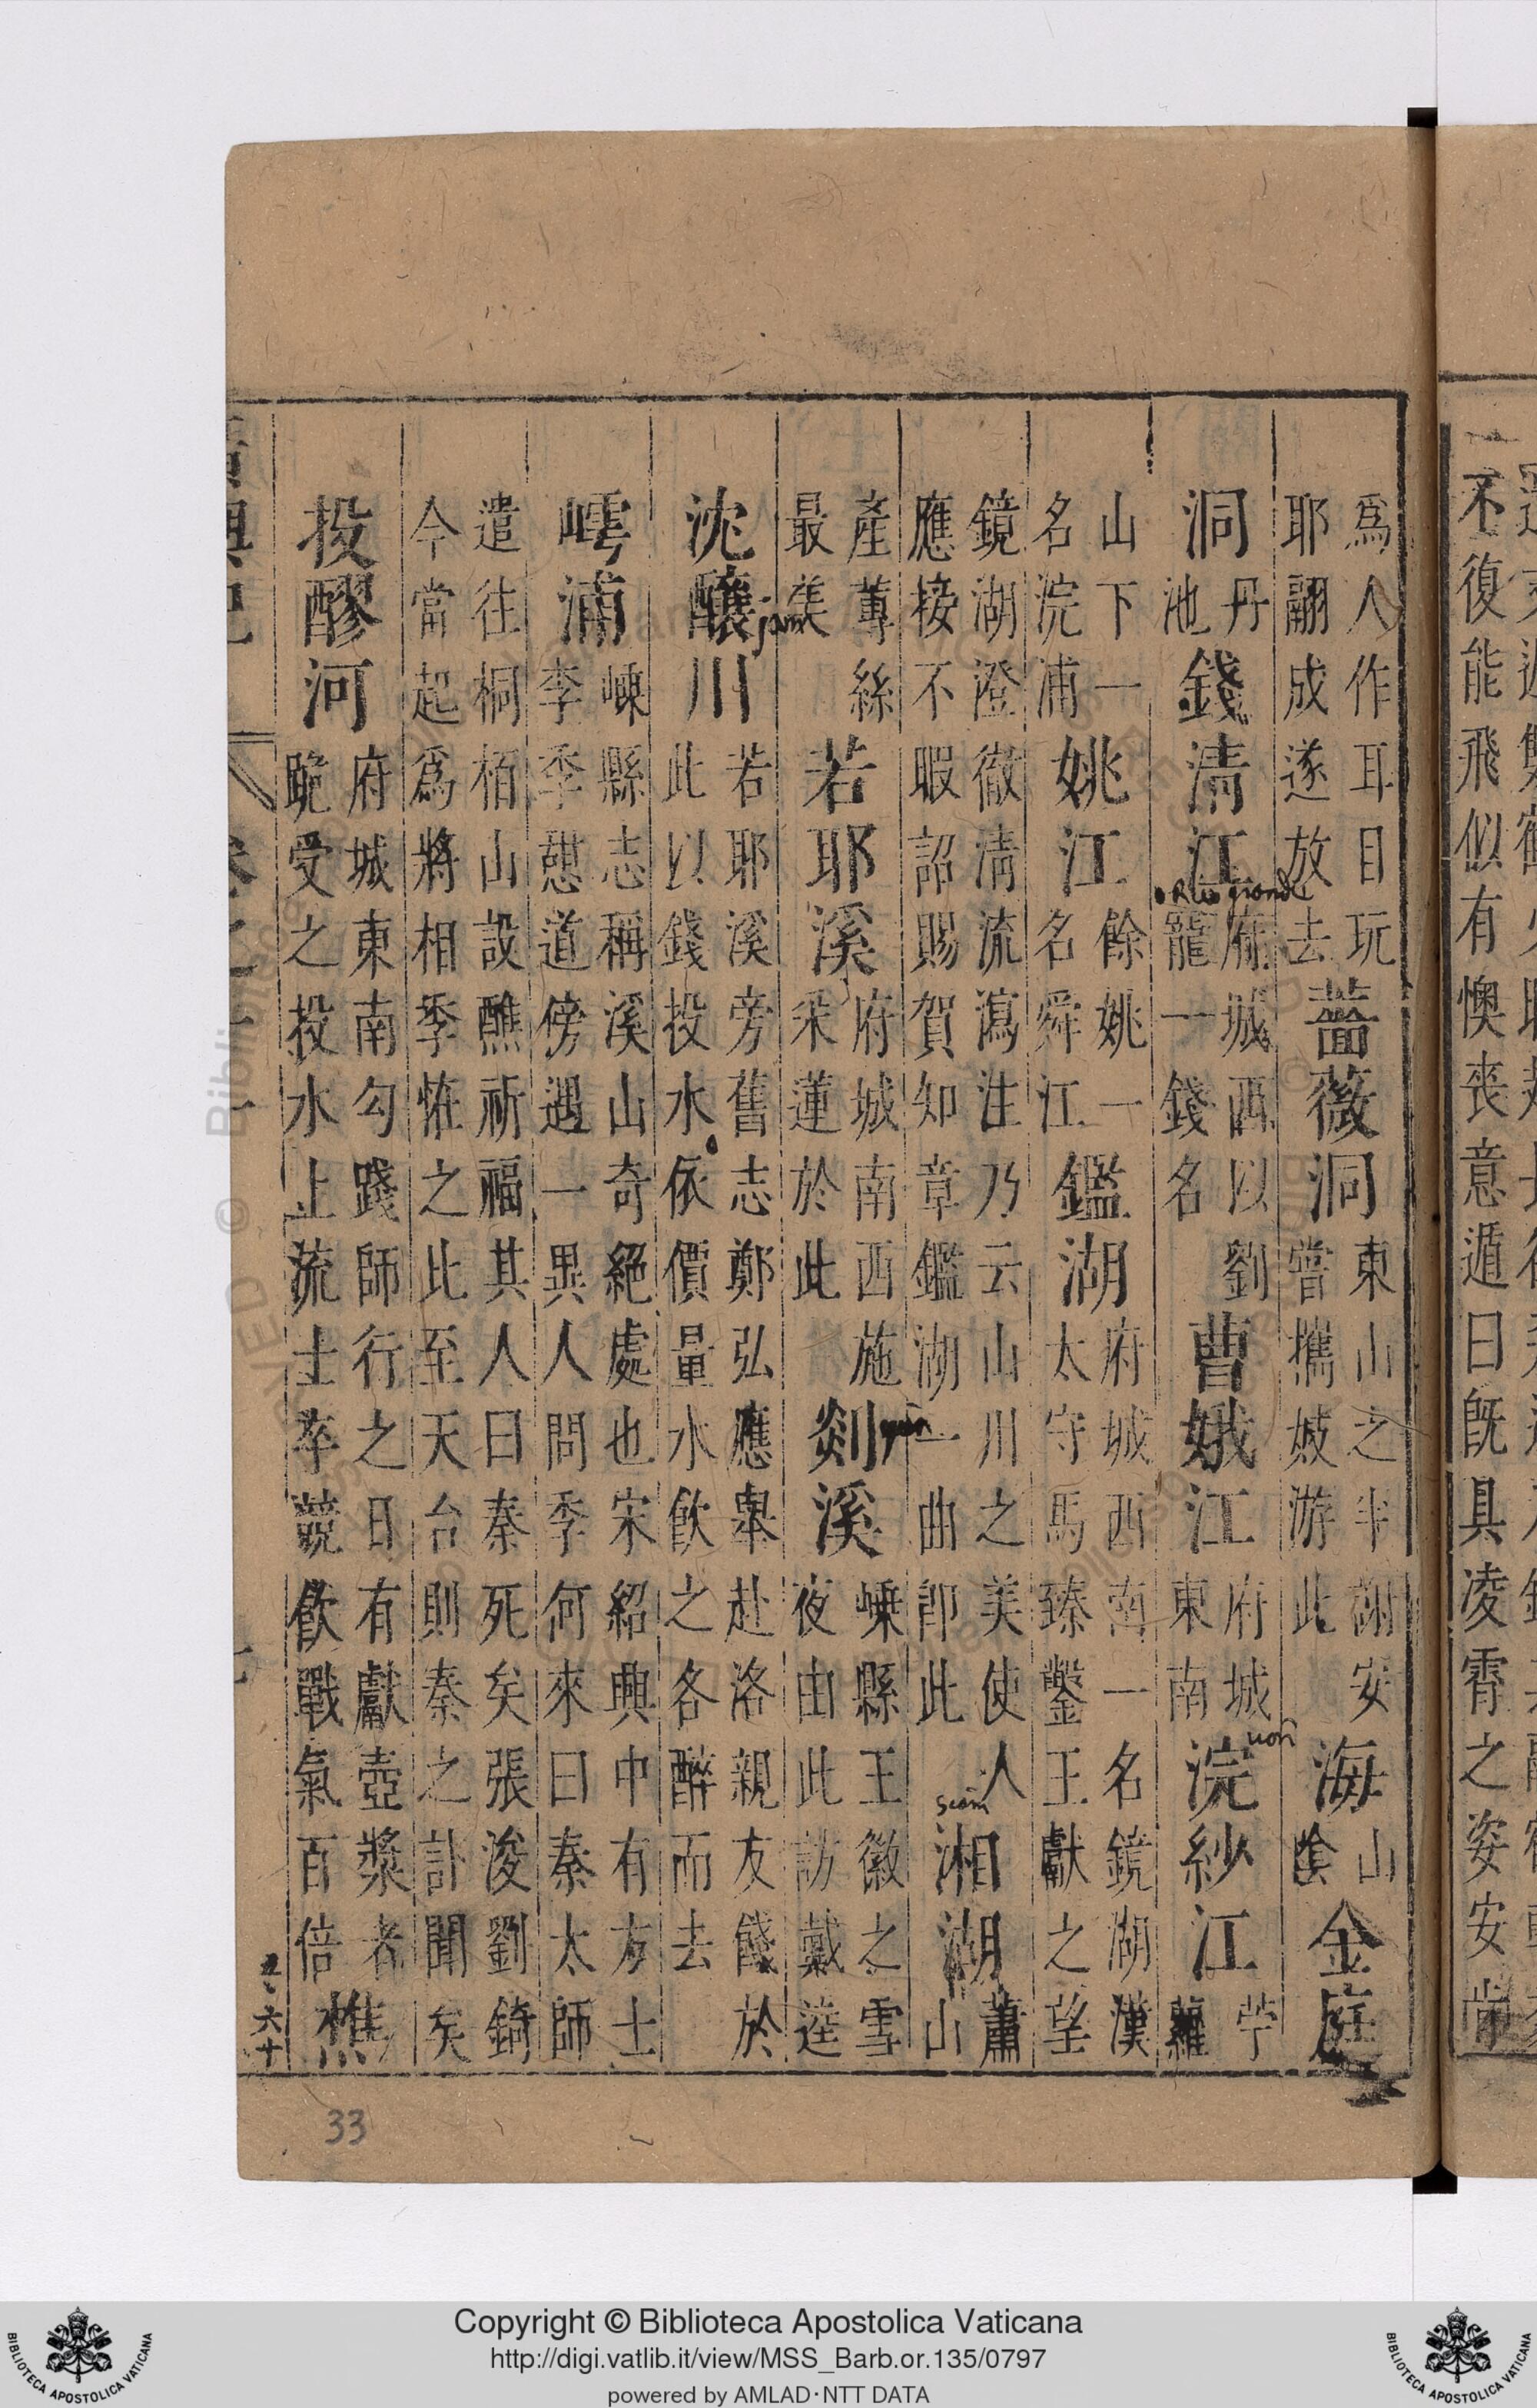 為人作耳目玩耶翮成遂放去 薔薇洞 東山之半謝安嘗攜妓游此 海山陰 金庭
洞 丹池 錢清江 府城西以劉龍一錢名 曹娥江 府城東南 浣紗江 苧蘿
山下一名浣浦 姚江 餘姚一名舜江 鑑湖 府城西南一名鏡湖漢太守馬臻鑿王獻之望
鏡湖澄徹清流瀉注乃云山川之美使人應接不暇詔賜賀知章鑑湖一曲即此 湘湖 蕭山
產蓴絲最美 若耶溪 府城南西施采蓮於此 剡溪 嵊縣王徽之雪夜由此訪戴逵
沈釀川 若耶溪旁舊志鄭弘應舉赴洛親友餞於此以錢投水依價量水飲之各醉而去
嶀浦 嵊縣志稱溪山奇絕處也宋紹興中有方士李季憇道傍遇一異人問季何來曰秦太師
遣往桐柏山設醮祈福其人曰秦死矣張浚劉錡今當起為將相季恠之比至天台則秦之訃聞矣
投醪河 府城東南勾踐師行之日有獻壺漿者跪受之投水上流士卒競飲戰氣百倍 樵
Rio grande
uon
scam
jam
六十
33
不復能飛似有懊喪意遁曰既具凌霄之姿安肯
Copyright © Biblioteca Apostolica Vaticana
http://digi.vatlib.it/view/MSS_Barb.or.135/0797
powered by AMLAD·NTT DATA
BIBLIOTECA APOSTOLICA VATICANA
BIBLIOTECA APOSTOLICA VATICANA